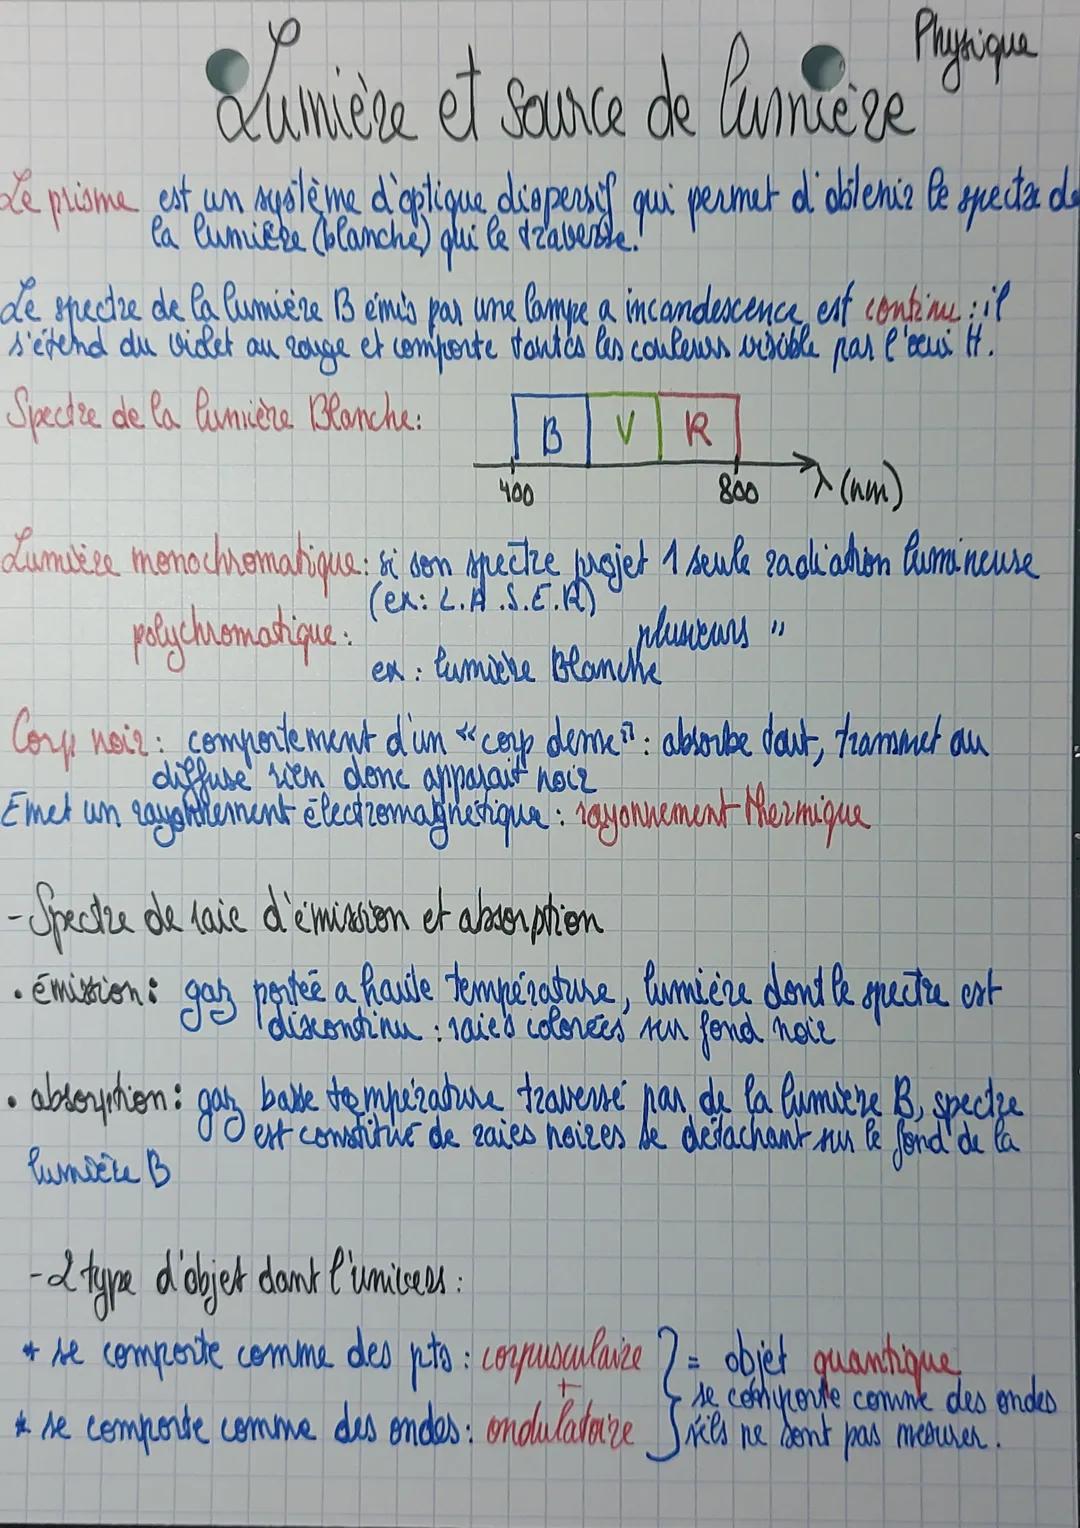 Physique
Lumière et source de lumière
Le prisme est un système d'optique dispersif qui permet d'obtenir le spectre de
la lumière (blanche) qui le traverse.
Le spectre de la lumière B émis par une lampe a incandescence est continu : il
s'étend du violet au rouge et comporte toutes les couleurs visible par l'oeui H.
Spectre de la lumière Blanche:
B V R
400 800 λ (nm)
Lumière monochromatique: si son spectre projet 1 seule radiation lumineuse
(ex: L.A.S.E.R)
polychromatique: plusieurs "
ex : lumière Blanche
Corp noir: comportement d'un "corp deme": absorbe tout, transmet ou
diffuse rien donc apparait noir
Emet un rayonnement électromagnétique : rayonnement thermique
- Spectre de raie d'émission et absorption
• émission: gaz portée a haute température, lumière dont le spectre est
discontinu : raies colorées sur fond noir
• absorption: gaz basse température traversé par de la lumière B, spectre
est constitué de raies noires se détachant sur le fond de la
lumière B
- 2 type d'objet dant l'univers :
* se comporte comme des pts : corpusculaire } = objet quantique
+ se comporte comme des ondes
* se comporte comme des ondes: ondulatoire s'ils ne sont pas mesurer.